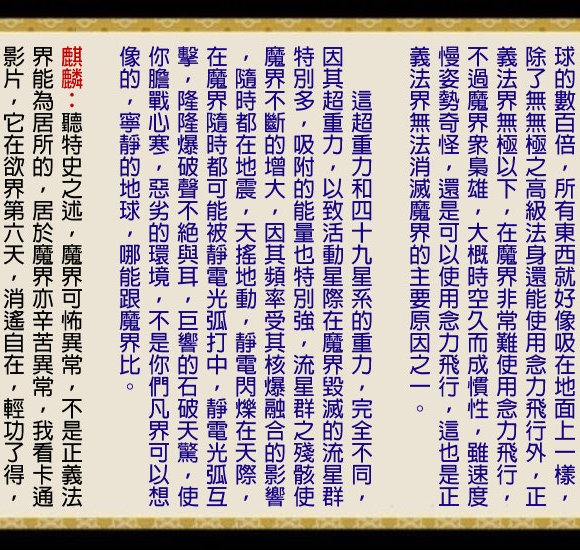 球的數百倍，所有東西就好像吸在地面上一樣，
除了無無極之高級法身還能使用念力飛行外，正
義法界無極以下，在魔界非常難使用念力飛行，
不過魔界衆梟雄，大概時空久而成慣性，雖速度
慢姿勢奇怪，還是可以使用念力飛行，這也是正
義法界無法消滅魔界的主要原因之一。
這超重力和四十九星系的重力，完全不同，
因其超重力，以致活動星際在魔界毀滅的流星群
特別多，吸附的能量也特別強，流星群之殘骸使
魔界不斷的增大，因其頻率受其核爆融合的影響
，隨時都在地震，天搖地動，靜電閃爍在天際，
在魔界隨時都可能被靜電光弧打中，靜電光弧互
擊，隆隆爆破聲不絕與耳，巨響的石破天驚，使
你膽戰心寒，惡劣的環境，不是你們凡界可以想
像的，寧靜的地球，哪能跟魔界比。
麒麟：聽特史之述，魔界可怖異常，不是正義法
界能為居所的，居於魔界亦辛苦異常，我看卡通
影片，它在欲界第六天，消遙自在，輕功了得，